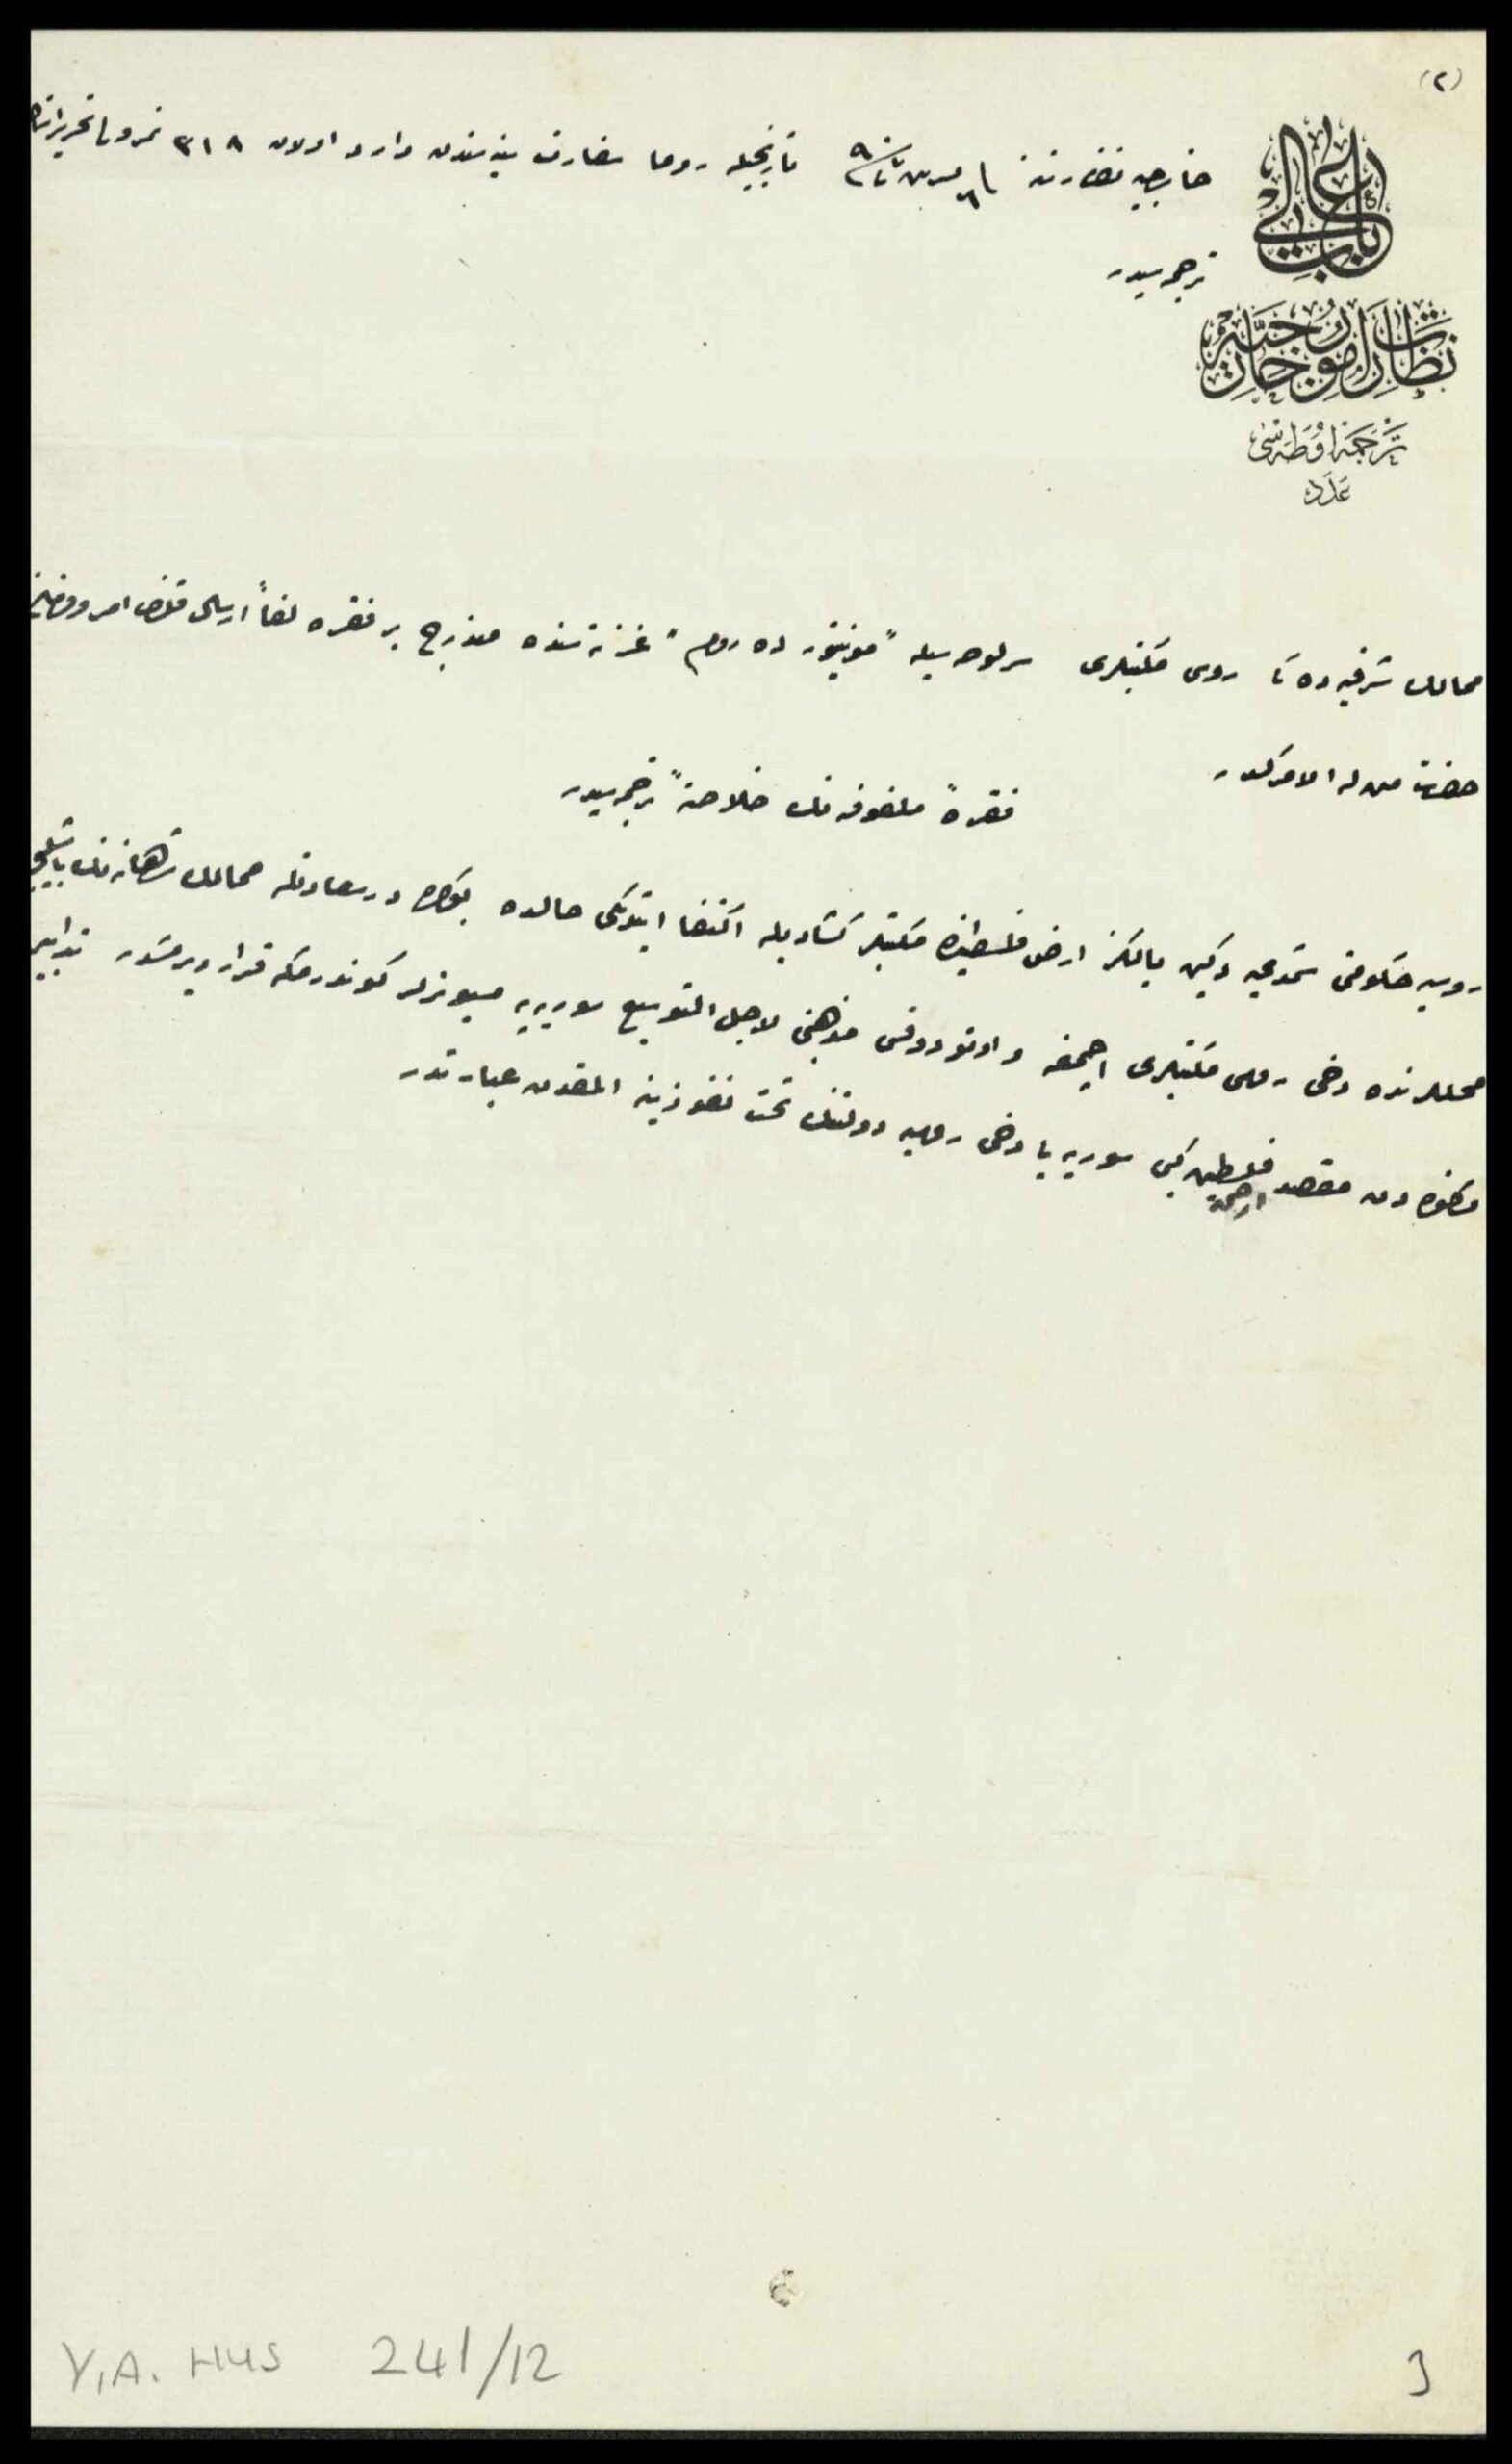 (٢)
باب عالی
نظارت امور خارجیه
ترجمه اوطه‌سی
عدد
خارجیه نظارتنه مارس سنه ٩٠ تاریخیله روما سفارت سنیه‌سندن وارد اولان ٣١٨ نمرولی تحریراتك
ترجمه‌سیدر
ممالك شرقیه‌ده‌كی روس مكتبلری سرلوحه‌سیله "مونیتور ده روم" غزته‌سنده مندرج بر فقره لفاً ارسال قلنمش امر و فرمان
حضرت من له الامركدر
فقرهٔ ملفوفه‌نك خلاصةً ترجمه‌سیدر
روسیه حكومتی شمدی‌یه دكین یالكز ارض فلسطینده مكتبلر كشادیله اكتفا ایتدیكی حالده بوكره درسعادتله ممالك شاهانه‌نك باشلیجه
محللرنده دخی روس مكتبلری آچمغه و اورتودوقس مذهبنی لاجل التوسیع سوریه‌یه میسیونرلر كوندرمكه قرار ویرمشدر تدابیر
مذكوره‌دن مقصد ارض فلسطین كبی سوریه‌یی دخی روسیه دولتنك تحت نفوذینه القدن عبارتدر
Y.A. HUS 241/12
3